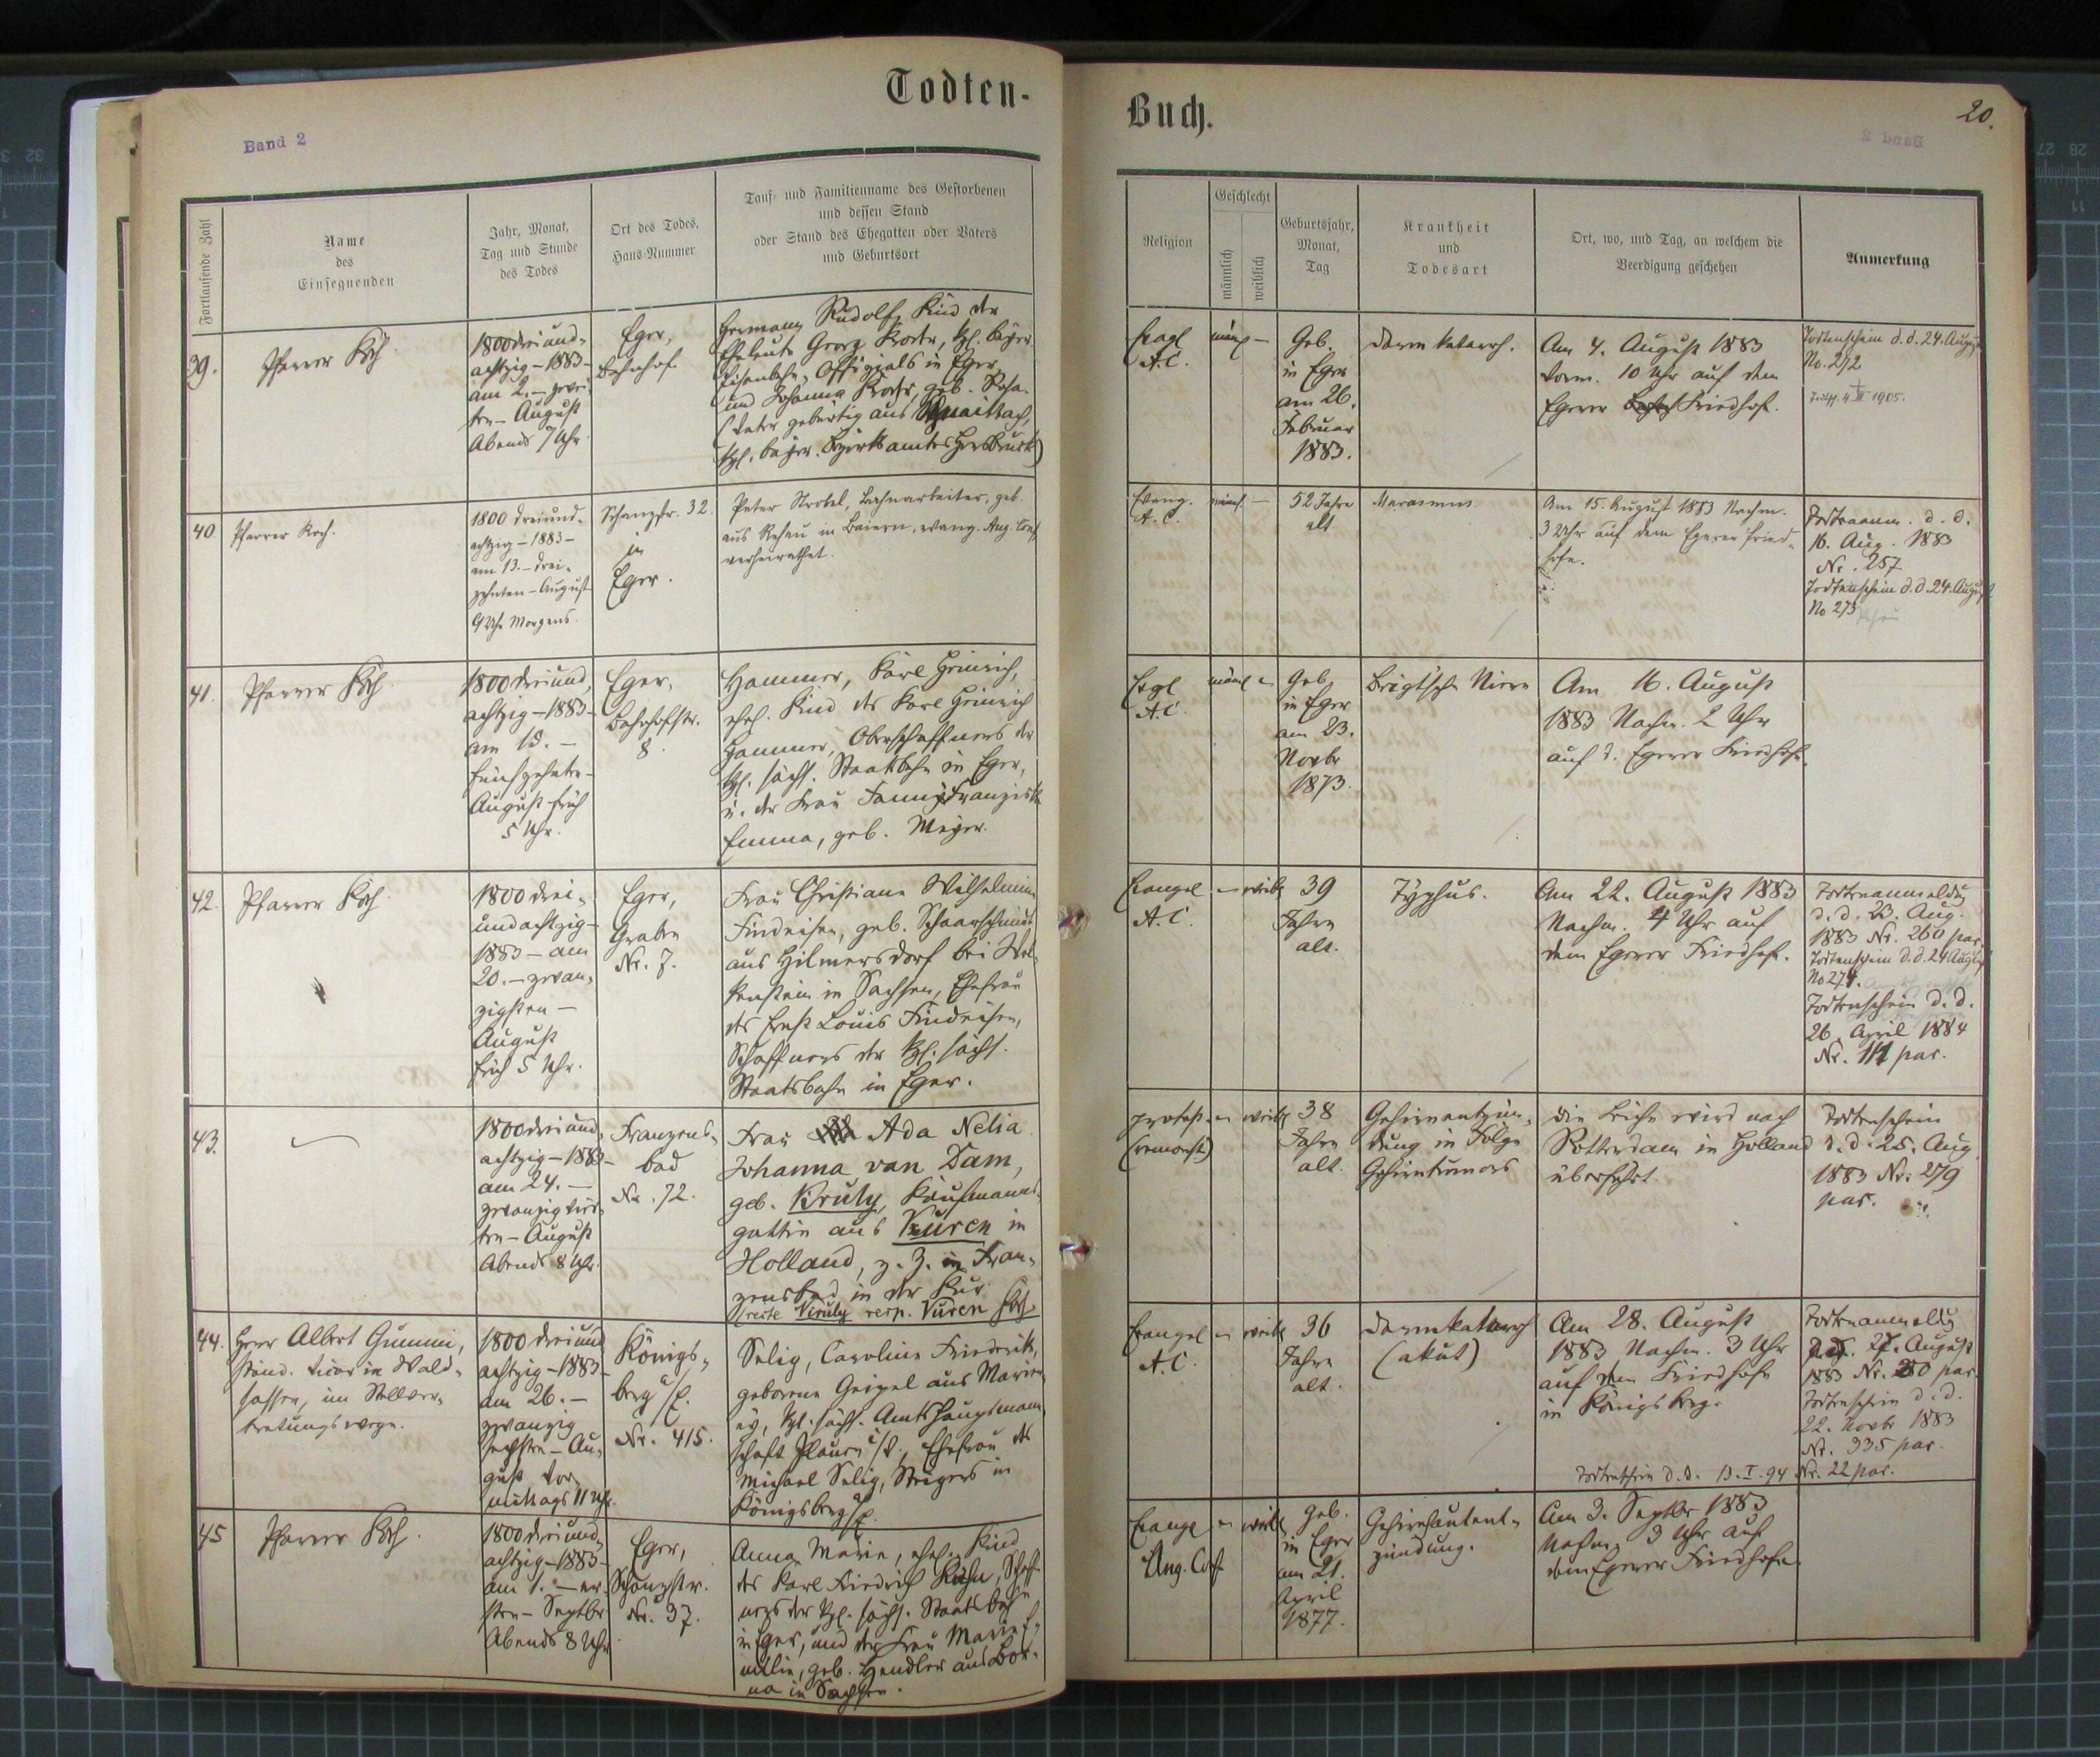 Todten-
Band 2
Fortlaufende Zahl
Name
des
Einsegnenden
Jahr, Monat,
Tag und Stunde
des Todes
Ort des Todes,
Haus-Nummer
Tauf- und Familienname des Gestorbenen
und dessen Stand
oder Stand des Ehegatten oder Vaters
und Geburtsort
39.
Pfarrer Koch.
1800 dreiund-
achtzig – 1883 –
am 2. – zwei-
ten – August
Abends 7 Uhr.
Eger,
Bahnhof.
Hermann Rudolf, Kind der
Eheleute Georg, kgl. bayer.
Eisenbahn-Offizials in Eger,
und Johanna geb.
(Vater gebürtig aus Schnaittach,
kgl. bayer. Bezirksamtes Hersbruck)
40.
Pfarrer Koch.
1800 dreiund-
achtzig – 1883 –
am 13. – drei-
zehnten – August
9 Uhr Morgens.
Schanzstr. 32.
in
Eger.
Peter Strobel, Bahnarbeiter, geb.
aus Rehau in Baiern, evang. Aug. Conf.
verheirathet.
41.
Pfarrer Koch.
1800 dreiund-
achtzig – 1883 –
am 15. –
fünfzehnten –
August früh
5 Uhr.
Eger,
Bahnhofstr.
8.
Hammer, Karl Heinrich,
ehel. Kind des Karl Heinrich
Hammer, Oberschaffners der
kgl. sächs. Staatsbahn in Eger,
u. der Frau Fanny Franziska
Emma, geb. Meyer.
42.
Pfarrer Koch.
1800 drei-
undachtzig –
1883 – am
20. – zwan-
zigsten –
August
früh 5 Uhr.
Eger,
Graben
Nr. 7.
Frau Christiane Wilhelmine
Findeisen, geb. Schaarschmidt
aus Hilmersdorf bei Wol-
kenstein in Sachsen, Ehefrau
des Ernst Louis Findeisen,
Schaffners der kgl. sächs.
Staatsbahn in Eger.
43.
1800 dreiund-
achtzig – 1883 –
am 24. –
zwanzigvier-
ten – August
Abends 8 Uhr.
Franzens-
bad
Nr. 72.
Frau Ada Nelia
Johanna van Dam,
geb. Kruly, Kaufmanns-
gattin aus Kuren in
Holland, z. Z. in Fran-
zensbad in der Kur
(recte Viruly resp. Vuren Koch.
44.
Herr Albert Gummi,
ständ. Vicar in Wald-
sassen, im Stellver-
tretungswege.
1800 dreiund
achtzig – 1883 –
am 26. –
zwanzig
sechsten – Au-
gust Vor-
mittags 11 Uhr.
Königs-
berg a/E.
Nr. 415.
Selig, Caroline Friederike,
geborene Geigel aus Marien-
ey, kgl. sächs. Amtshauptmann-
schaft Plauen i/V., Ehefrau des
Michael Selig, Steigers in
Königsberg a/E.
45
Pfarrer Koch.
1800 dreiund-
achtzig – 1883 –
am 1. – er-
sten – Septbr
Abends 8 Uhr.
Eger,
Schanzstr.
Nr. 37.
Anna Marie, ehel. Kind
des Karl Friedrich Kuhn, Schaff-
ners der kgl. sächs. Staatsbahn
in Eger, und der Frau Marie E-
milie, geb. Hendler aus Bor-
na in Sachsen.
Buch.
20.
Band 2
Religion
Geschlecht
männlich
weiblich
Geburtsjahr,
Monat,
Tag
Krankheit
und
Todesart
Ort, wo, und Tag, an welchem die
Beerdigung geschehen
Anmerkung
Evagl
A.C.
männl –
Geb.
in Eger
am 26.
Februar
1883.
Darmkatarrh.
Am 4. August 1883
Vorm. 10 Uhr auf dem
Egerer Friedhofe.
Todtenschein d. d. 24. August
No. 272
1905.
Evang.
A. C.
männl. –
52 Jahre
alt
Marasmus
Am 15. August 1883 Nachm.
3 Uhr auf dem Egerer Fried-
hofe.
Todtenanm. d. d.
16. Aug. 1883
Nr. 257
Todtenschein d. d. 24. August
No 273
Evgl
A.C.
männl –
Geb.
in Eger
am 23.
Novbr
1873.
Brigtsche Niere
Am 16. August
1883 Nachm. 2 Uhr
auf d. Egerer Friedhofe.
Evangel
A. C.
– weibl
39
Jahre
alt.
Typhus.
Am 22. August 1883
Nachm. 4 Uhr auf
dem Egerer Friedhofe.
Todtenanmeldg
d. d. 23. Aug.
1883 Nr. 260 par.
Todtenschein d. d. 24 August
No 274.
Todtenschein d. d.
26. April 1884
Nr. 111 par.
protest.
(remonst)
– weibl
38
Jahre
alt.
Gehirnentzün-
dung in Folge
Gehirntumors
Die Leiche wird nach
Rotterdam in Holland
überführt.
Todtenschein
d. d. 25. Aug
1883 Nr. 279
par.
Evangel
A. C.
– weibl
36
Jahre
alt.
Darmkatarrh
(akut)
Am 28. August
1883 Nachm. 3 Uhr
auf dem Friedhofe
in Königsberg.
Todtenanmeldg
d. d. 27. August
1883 Nr. 280 par.
Todtenschein d. d.
22. Novbr 1883
Nr. 335 par.
Todtenschein d. d. 13. I. 94 Nr. 22 par.
Evange
Aug. Conf
– weibl
Geb.
in Eger
am 21.
April
1877.
Gehirnhautent-
zündung.
Am 3. Septbr 1883
Nachm. 3 Uhr auf
dem Egerer Friedhofe